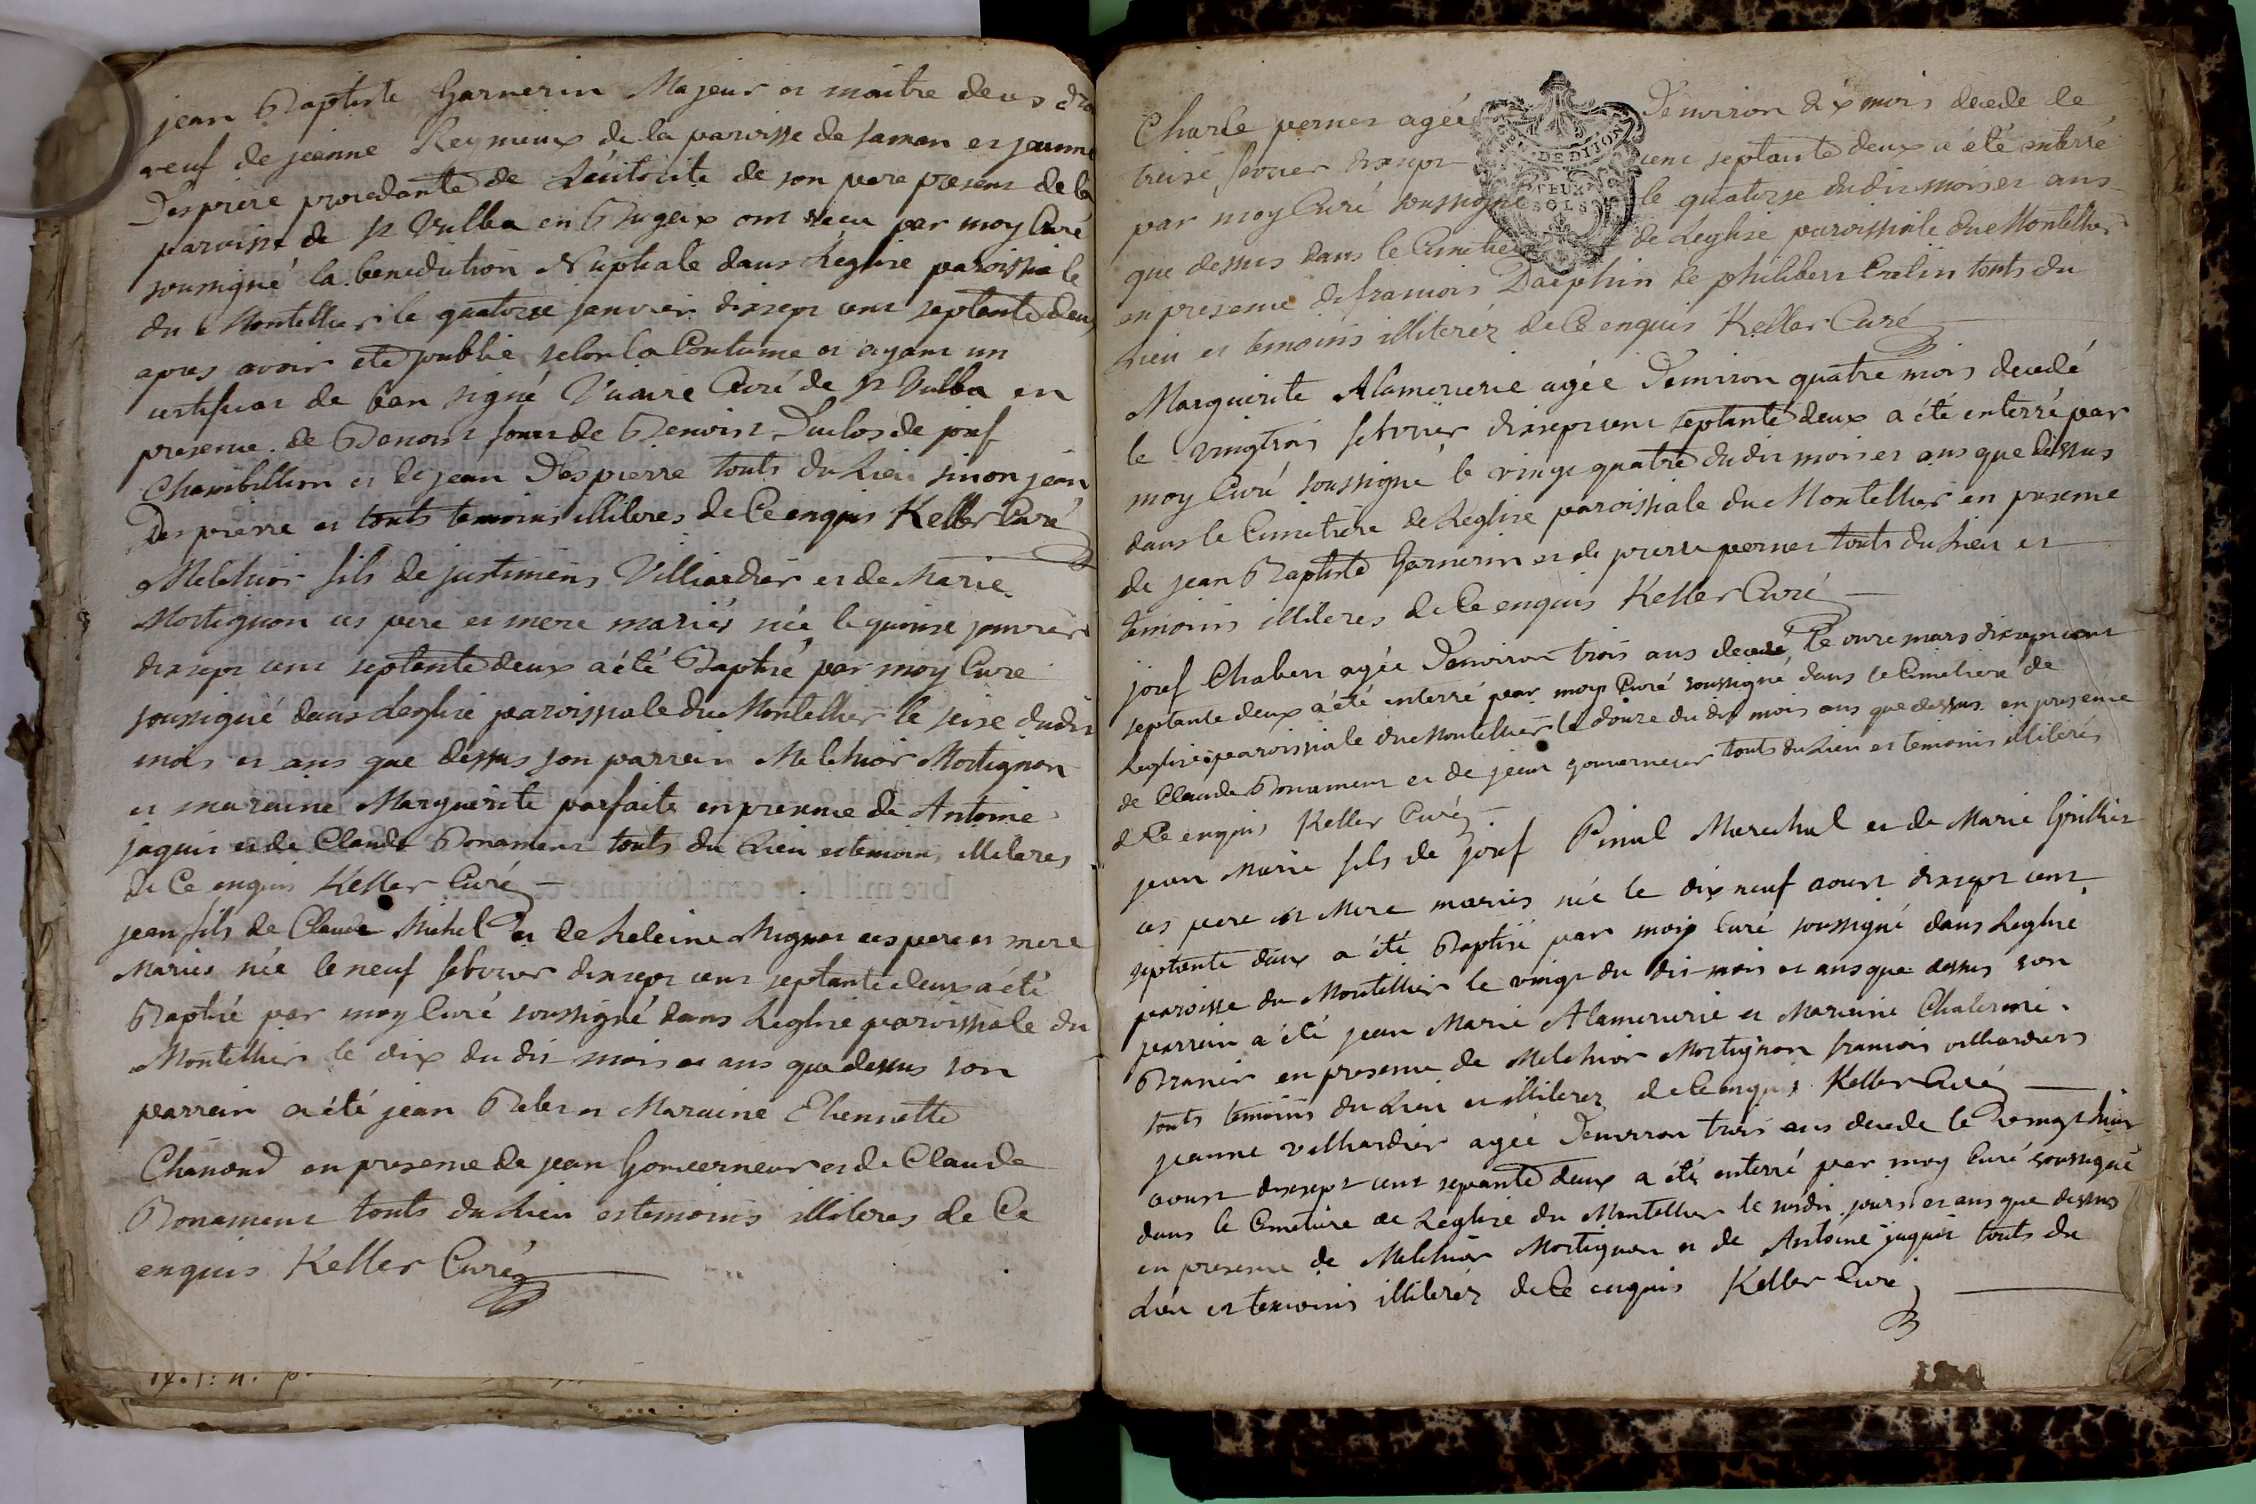 jean Baptiste Garnerin Majeur et maitre de ces dro
veuf de jeanne Reymieux de la paroisse de Saman et jeanne
Despiere procedante de Lautorité de son pere present de la
paroisse de St Vulba en Bugeix ont recu par moy Curé
soussigné la benediction Nuptiale dans Leglise paroissiale
du Montellier le quatorse janvier dixsept cent septante deux
apres avoir eté publié selon la Coutume et ayant un
certificat de ban signé Curé de St Vulba en
presence de Benoit de Benoist Duclos de josef
Chambillion et de jean Despierre touts du Lieu sinon jean
Despierre et touts temoins illiteres de Ce enquis Keller Curé
Melchior fils de justiniens Villiardier et de Marie
Mortignon ces pere et mere mariés née le quinse janvier
dixsept cent septante deux a été Baptisé par moy Cure
soussigné dans Leglise paroissiale du Montellier le seise dudit
mois et ans que dessus son parrain Melchior Mortignon
et maraine Marguerite parfaite en presence de Antoine
jaquis et de Claude Bonament touts du Lieu et temoins illiteres
de Ce enquis Keller Curé
jean fils de Claude Michel et de heleine Mignot ces pere et mere
Mariés née le neuf febvrier dixsept cent septante deux a été
Baptisé par moy Curé soussigné dans Leglise paroissiale du
Montellier le dix du dit mois et ans que dessus son
parrain a été jean et Maraine Etiennette
Chanand en presence de jean Gouverneur et de Claude
Bonament touts du Lieu et temoins illiteres de Ce
enquis Keller Curé
Charle pernet agée Denviron dix mois decede le
treise fevrier dixsept cent septante deux a été enterré
par moy Curé soussigné le quatorse du dit mois et ans
que dessus dans le Cimetiere de Leglise paroissiale du Montellier
en presence de francois Daephin de philibert Cralin touts du
Lieu et temoins illiterez de Ce enquis Keller Curé
GEN. DE DIJON
DEUX
SOLS
Marguerite Alamercerie agée Denviron quatre mois decedé
le vingtrois febvrier dixsept cent septante deux a été enterré par
moy Curé soussigné le vingt quatre du dit mois et ans que dessus
dans le Cimetiere de Leglise paroissiale du Montellier en presence
de jean Baptiste Garnerin et de pierre pernet touts du Lieu et
temoins illiteres de Ce enquis Keller Curé
josef Chabert agée Denviron trois ans decedé Le onze mars dixsept cent
septante deux a été enterré par moy Curé soussigné dans le Cimetiere de
Leglise paroissiale du Montellier le douze du dit mois ans que dessus en presence
de Claude Bonament et de jean gouverneur touts du Lieu et temoins illiterés
de Ce enquis Keller Curé
jean Marie fils de josef Pinal Marechal et de Marie Grillier
ces pere et Mere mariés née le dix neuf aoust dixsept cent
septante deux a été Baptisé par moy Curé soussigné dans Leglise
paroisse du Montellier le vingt du dit mois et ans que dessus son
parrain a été jean Marie Alamercerie et Maraine
en presence de Melchior Mortignon francois villiardiers
touts temoins du Lieu et illiterez de Ce enquis Keller Curé
jeanne villiardier agée Denviron trois ans decede le vingt huit
aoust dixsept cent septante deux a été enterré par moy Curé soussigné
dans le Cimetiere de Leglise du Montellier le susdit jours et ans que dessus
en presence de Melchior Mortignon et de Antoine jaquis touts du
Lieu et temoins illiteréz de Ce enquis Keller Curé